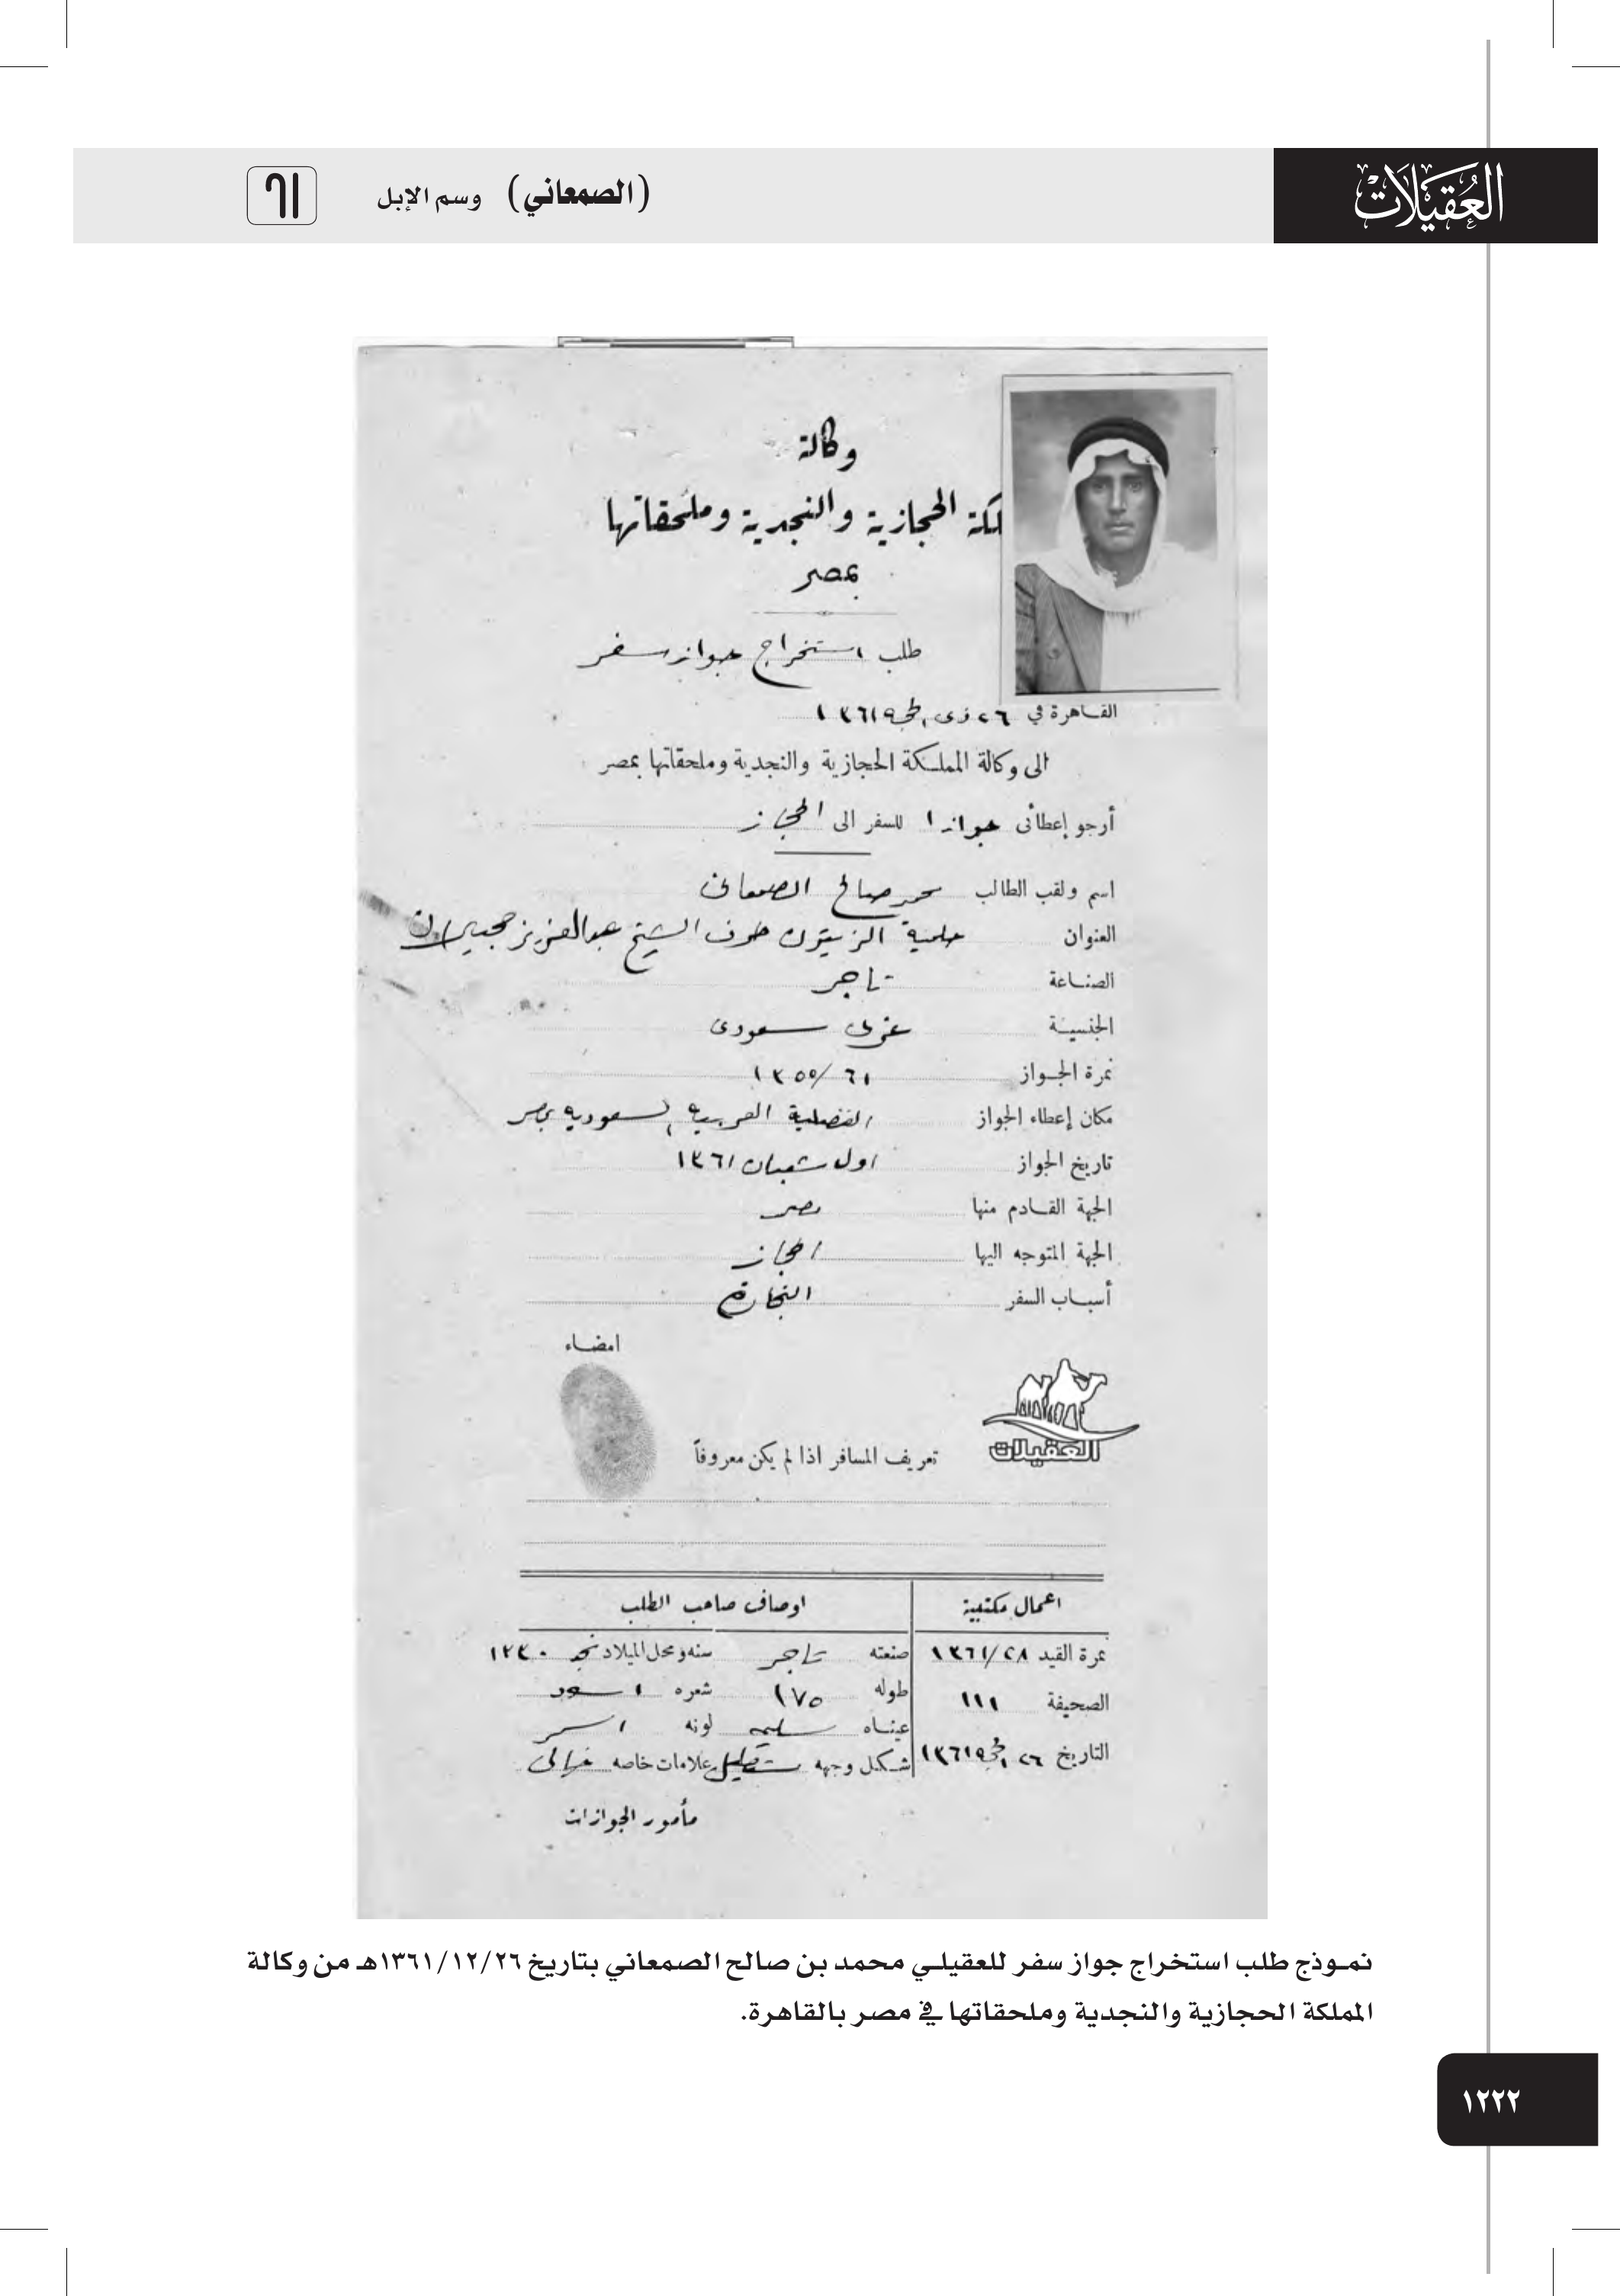 العُقَيْلَات
(الصمعاني) وسم الإبل
وكالة
لكة الحجازية والنجدية وملحقاتها
بمصر
طلب استخراج جواز سفر
القاهرة في ٢٦ ذى الحجة ١٣٦١
الى وكالة المملكة الحجازية والنجدية وملحقاتها بمصر
أرجو إعطائى جوازا للسفر الى الحجاز
اسم ولقب الطالب محمد صالح الصمعانى
العنوان حلمية الزيتون طرف الشيخ عبدالعزيز حجيلان
الصناعة تاجر
الجنسية عربى سعودى
نمرة الجواز ٦١/١٣٥٥
مكان إعطاء الجواز القنصلية العربية السعودية بمصر
تاريخ الجواز اول شعبان ١٣٦١
الجهة القادم منها مصر
الجهة المتوجه اليها الحجاز
أسباب السفر التجارة
امضاء
العقيلات
تعريف المسافر اذا لم يكن معروفاً
اعمال مكتبية اوصاف صاحب الطلب
نمرة القيد ٢٨/١٣٦١ صنعته تاجر سنه ومحل الميلاد نجد ١٣٣٠
الصحيفة ١١١ طوله ١٧٥ شعره اسود
عيناه سليمه لونه اسمر
التاريخ ٢٦ الحجة ١٣٦١ شكل وجهه مستطيل علامات خاصه
مأمور الجوازات
نمـوذج طلب استخراج جواز سفر للعقيلـي محمد بن صالح الصمعاني بتاريخ ١٣٦١/١٢/٢٦هـ من وكالة
المملكة الحجازية والنجدية وملحقاتها في مصر بالقاهرة.
١٢٢٢